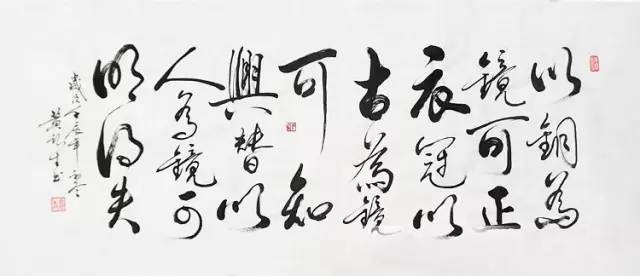 以銅為
鏡可正
衣冠以
古為鏡
可知
興替以
人為鏡可
明得失
歲次壬辰年
黃 書